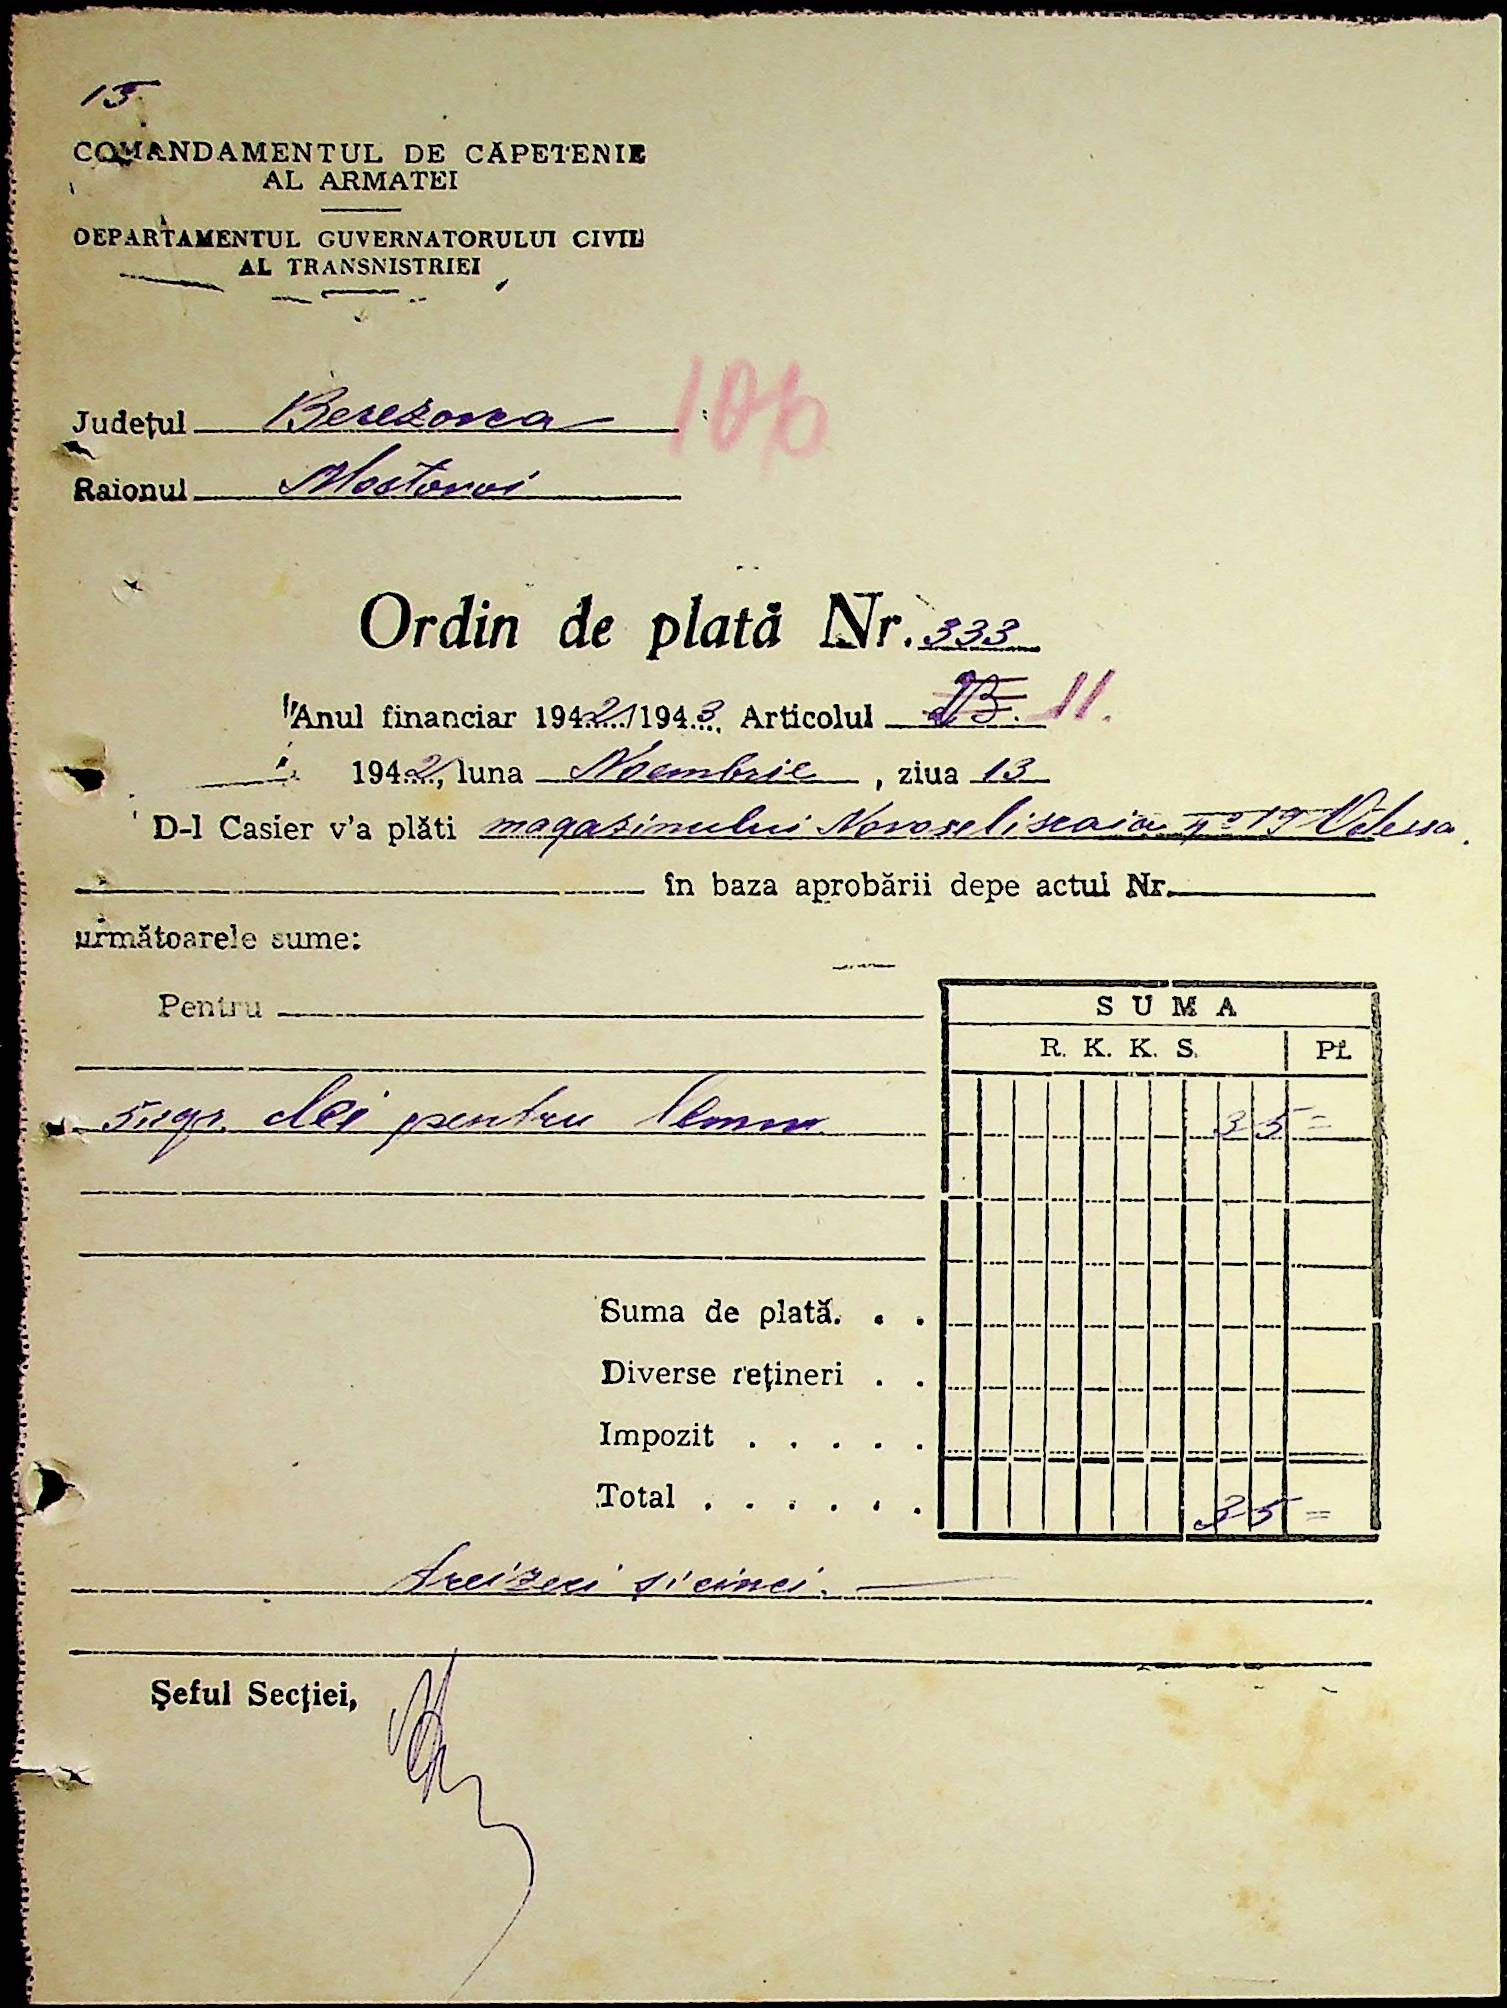 15
COMANDAMENTUL DE CĂPETENIE
AL ARMATEI
DEPARTAMENTUL GUVERNATORULUI CIVIL
AL TRANSNISTRIEI
106
Județul Berezovca
Raionul Mostovoi
Ordin de plată Nr. 333
Anul financiar 1942/1943, Articolul 11.
1942, luna Noembrie, ziua 13
D-l Casier v'a plăti magazinului Novoseliscaia No 19 Odessa.
în baza aprobării depe actul Nr.
următoarele sume:
Pentru
SUMA
R. K. K. S. Pf.
gr. clei pentru lemn 35=
Suma de plată. . .
Diverse rețineri . .
Impozit . . . . .
Total . . . . . . 35=
treizeci și cinci.
Șeful Secției,